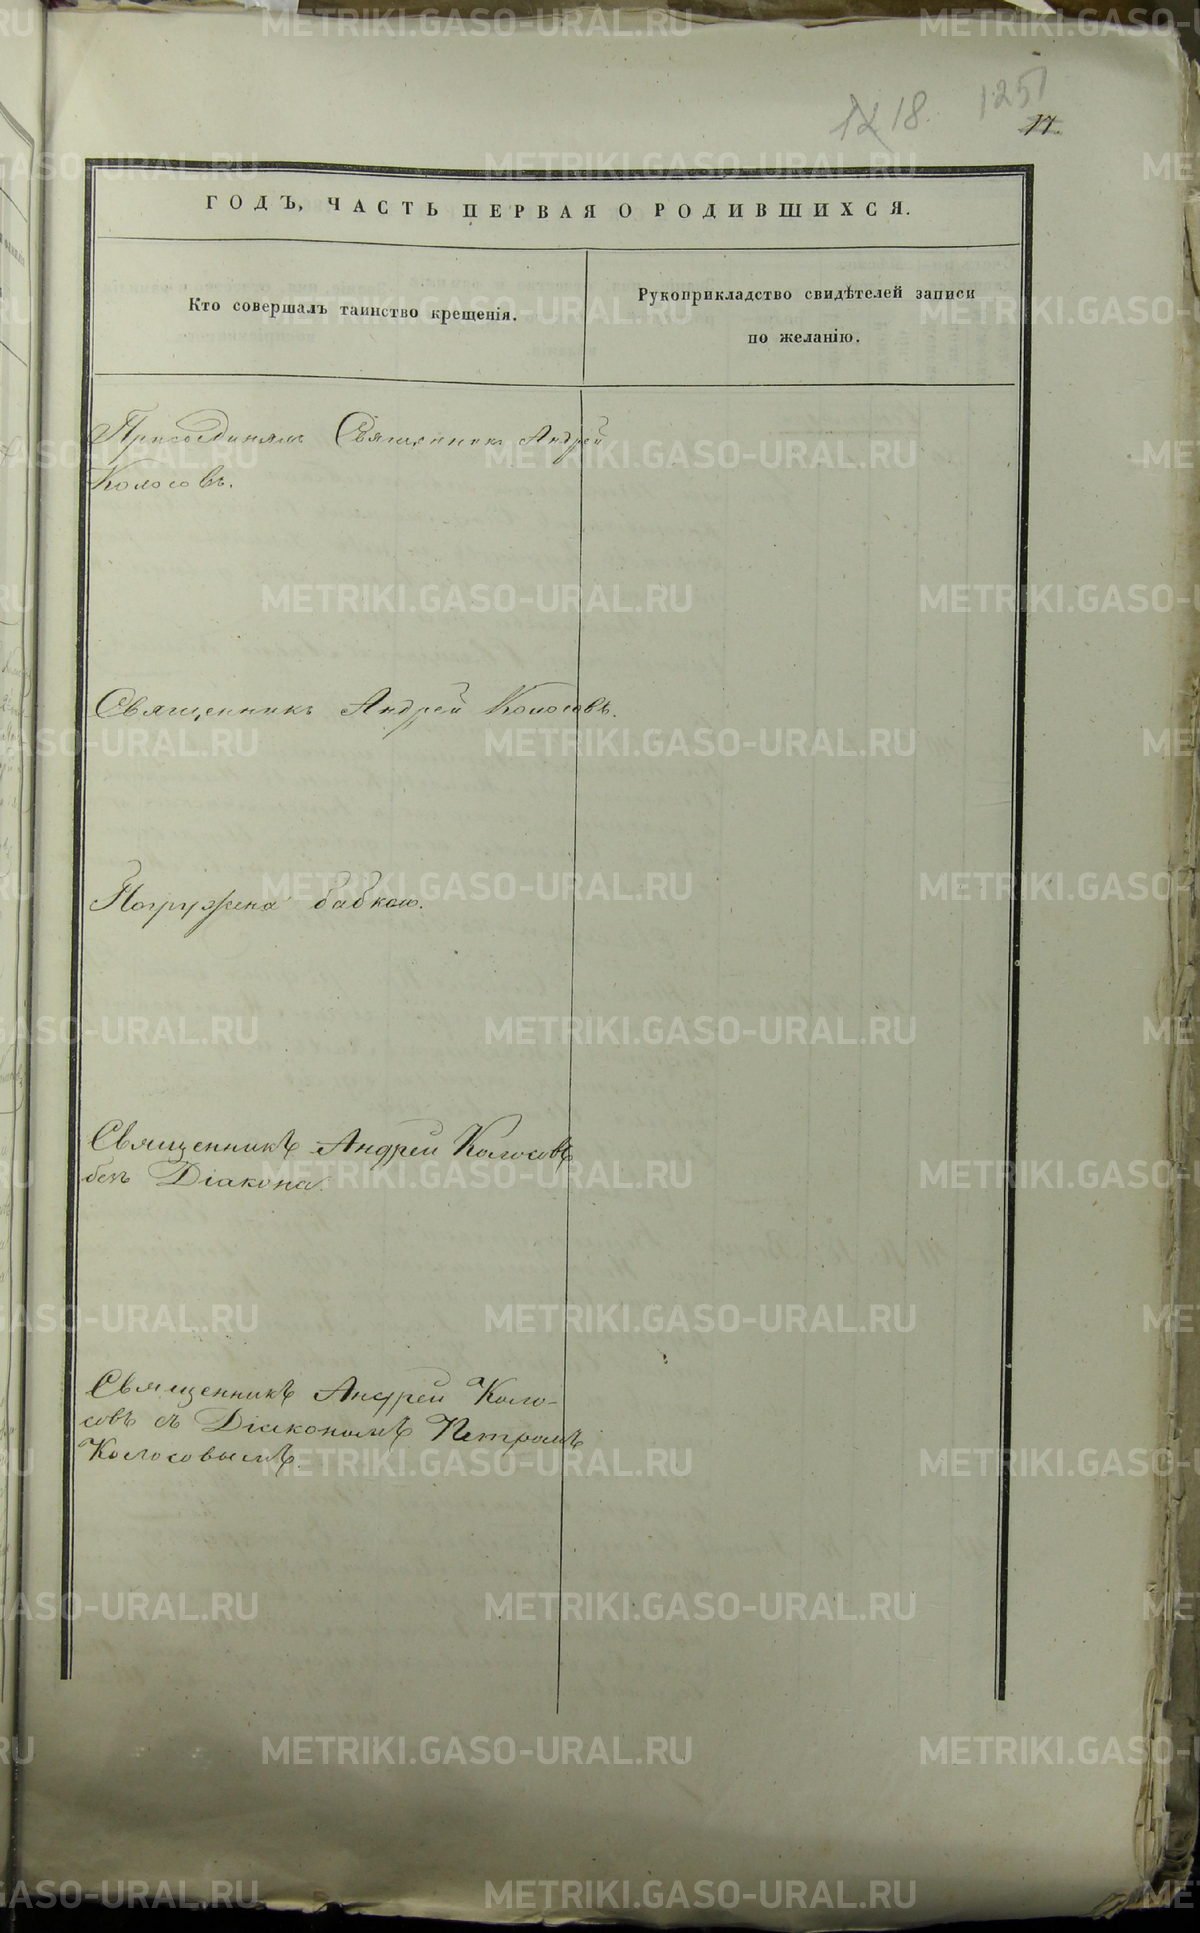 1251
18.
17.
ГОДЪ, ЧАСТЬ ПЕРВАЯ О РОДИВШИХСЯ.
Кто совершалъ таинство крещенія.
Рукоприкладство свидѣтелей записи
по желанію.
Присоединялъ Священникъ Андрей
Колосовъ.
Священникъ Андрей Колосовъ.
Погружена бабкою.
Священникъ Андрей Колосовъ
безъ Діакона.
Священникъ Андрей Коло-
совъ съ Діакономъ Петромъ
Колосовымъ.
METRIKI.GASO-URAL.RU